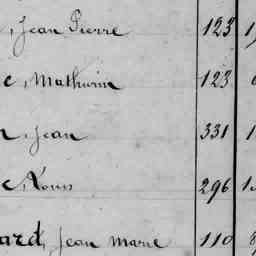 , Jean Pierre 123 1
c, Mathurin 123
, Jean 331 1
c, Louis 296 1
ard, Jean Marie 110 8